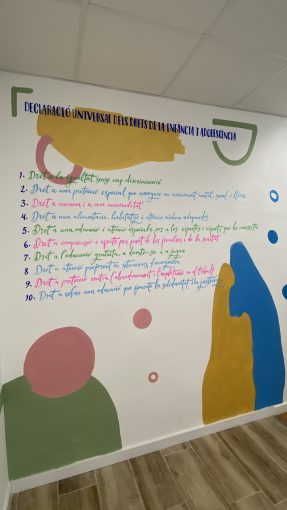 DECLARACIÓ UNIVERSAL DELS DRETS DE LA INFÀNCIA I ADOLESCÈNCIA
1- Dret a la igualtat sense cap discriminació
2- Dret a una protecció especial que assegure un creixement mental, social i físic
3- Dret a un nom i a una nacionalitat
4- Dret a una alimentació, habitatge i atenció mèdica adequades
5- Dret a una educació i atenció especials per a los xiquetes i xiquets que ho necessiten
6- Dret a comprensió i afecte per part de les famílies i de la societat
7- Dret a l'educació gratuïta, a divertir-se i a jugar
8- Dret a atenció preferent en situacions d'emergència
9- Dret a protecció contra l'abandonament i l'explotació en el treball
10- Dret a rebre una educació que fomente la solidaritat i la justícia